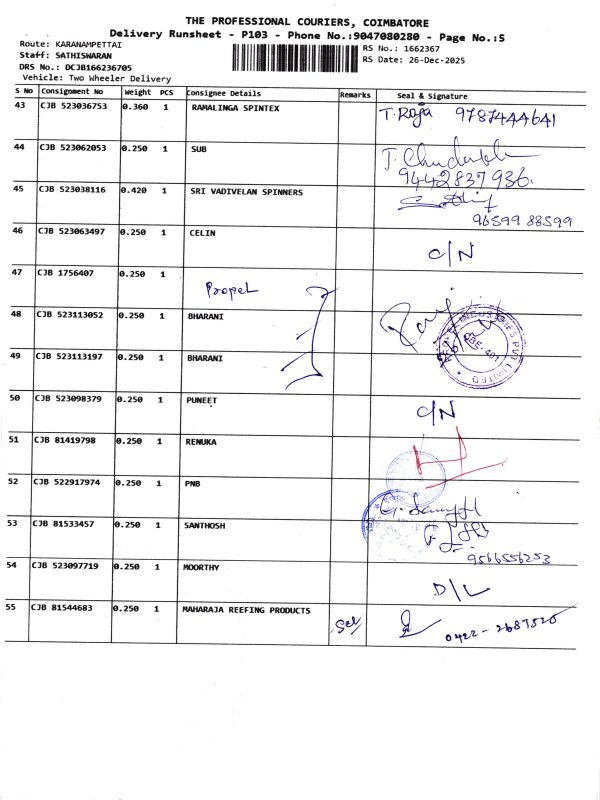 THE PROFESSIONAL COURIERS, COIMBATORE
Delivery Runsheet - P103 - Phone No.:9047080280 - Page No.:5
Route: KARANAMPETTAI
RS No.: 1662367
Staff: SATHISWARAN
RS Date: 26-Dec-2025
DRS No.: DCJB166236705
Vehicle: Two Wheeler Delivery
S No Consignment No Weight PCS Consignee Details Remarks Seal & Signature
43 CJB 523036753 0.360 1 RAMALINGA SPINTEX T. Raja 9787444641
44 CJB 523062053 0.250 1 SUB
9442837936.
45 CJB 523038116 0.420 1 SRI VADIVELAN SPINNERS
96599 88599
46 CJB 523063497 0.250 1 CELIN C/N
47 CJB 1756407 0.250 1
Propel
48 CJB 523113052 0.250 1 BHARANI
49 CJB 523113197 0.250 1 BHARANI
50 CJB 523098379 0.250 1 PUNEET C/N
51 CJB 81419798 0.250 1 RENUKA
52 CJB 522917974 0.250 1 PNB
53 CJB 81533457 0.250 1 SANTHOSH
9566556253
54 CJB 523097719 0.250 1 MOORTHY D/L
55 CJB 81544683 0.250 1 MAHARAJA REEFING PRODUCTS
0422-2687520